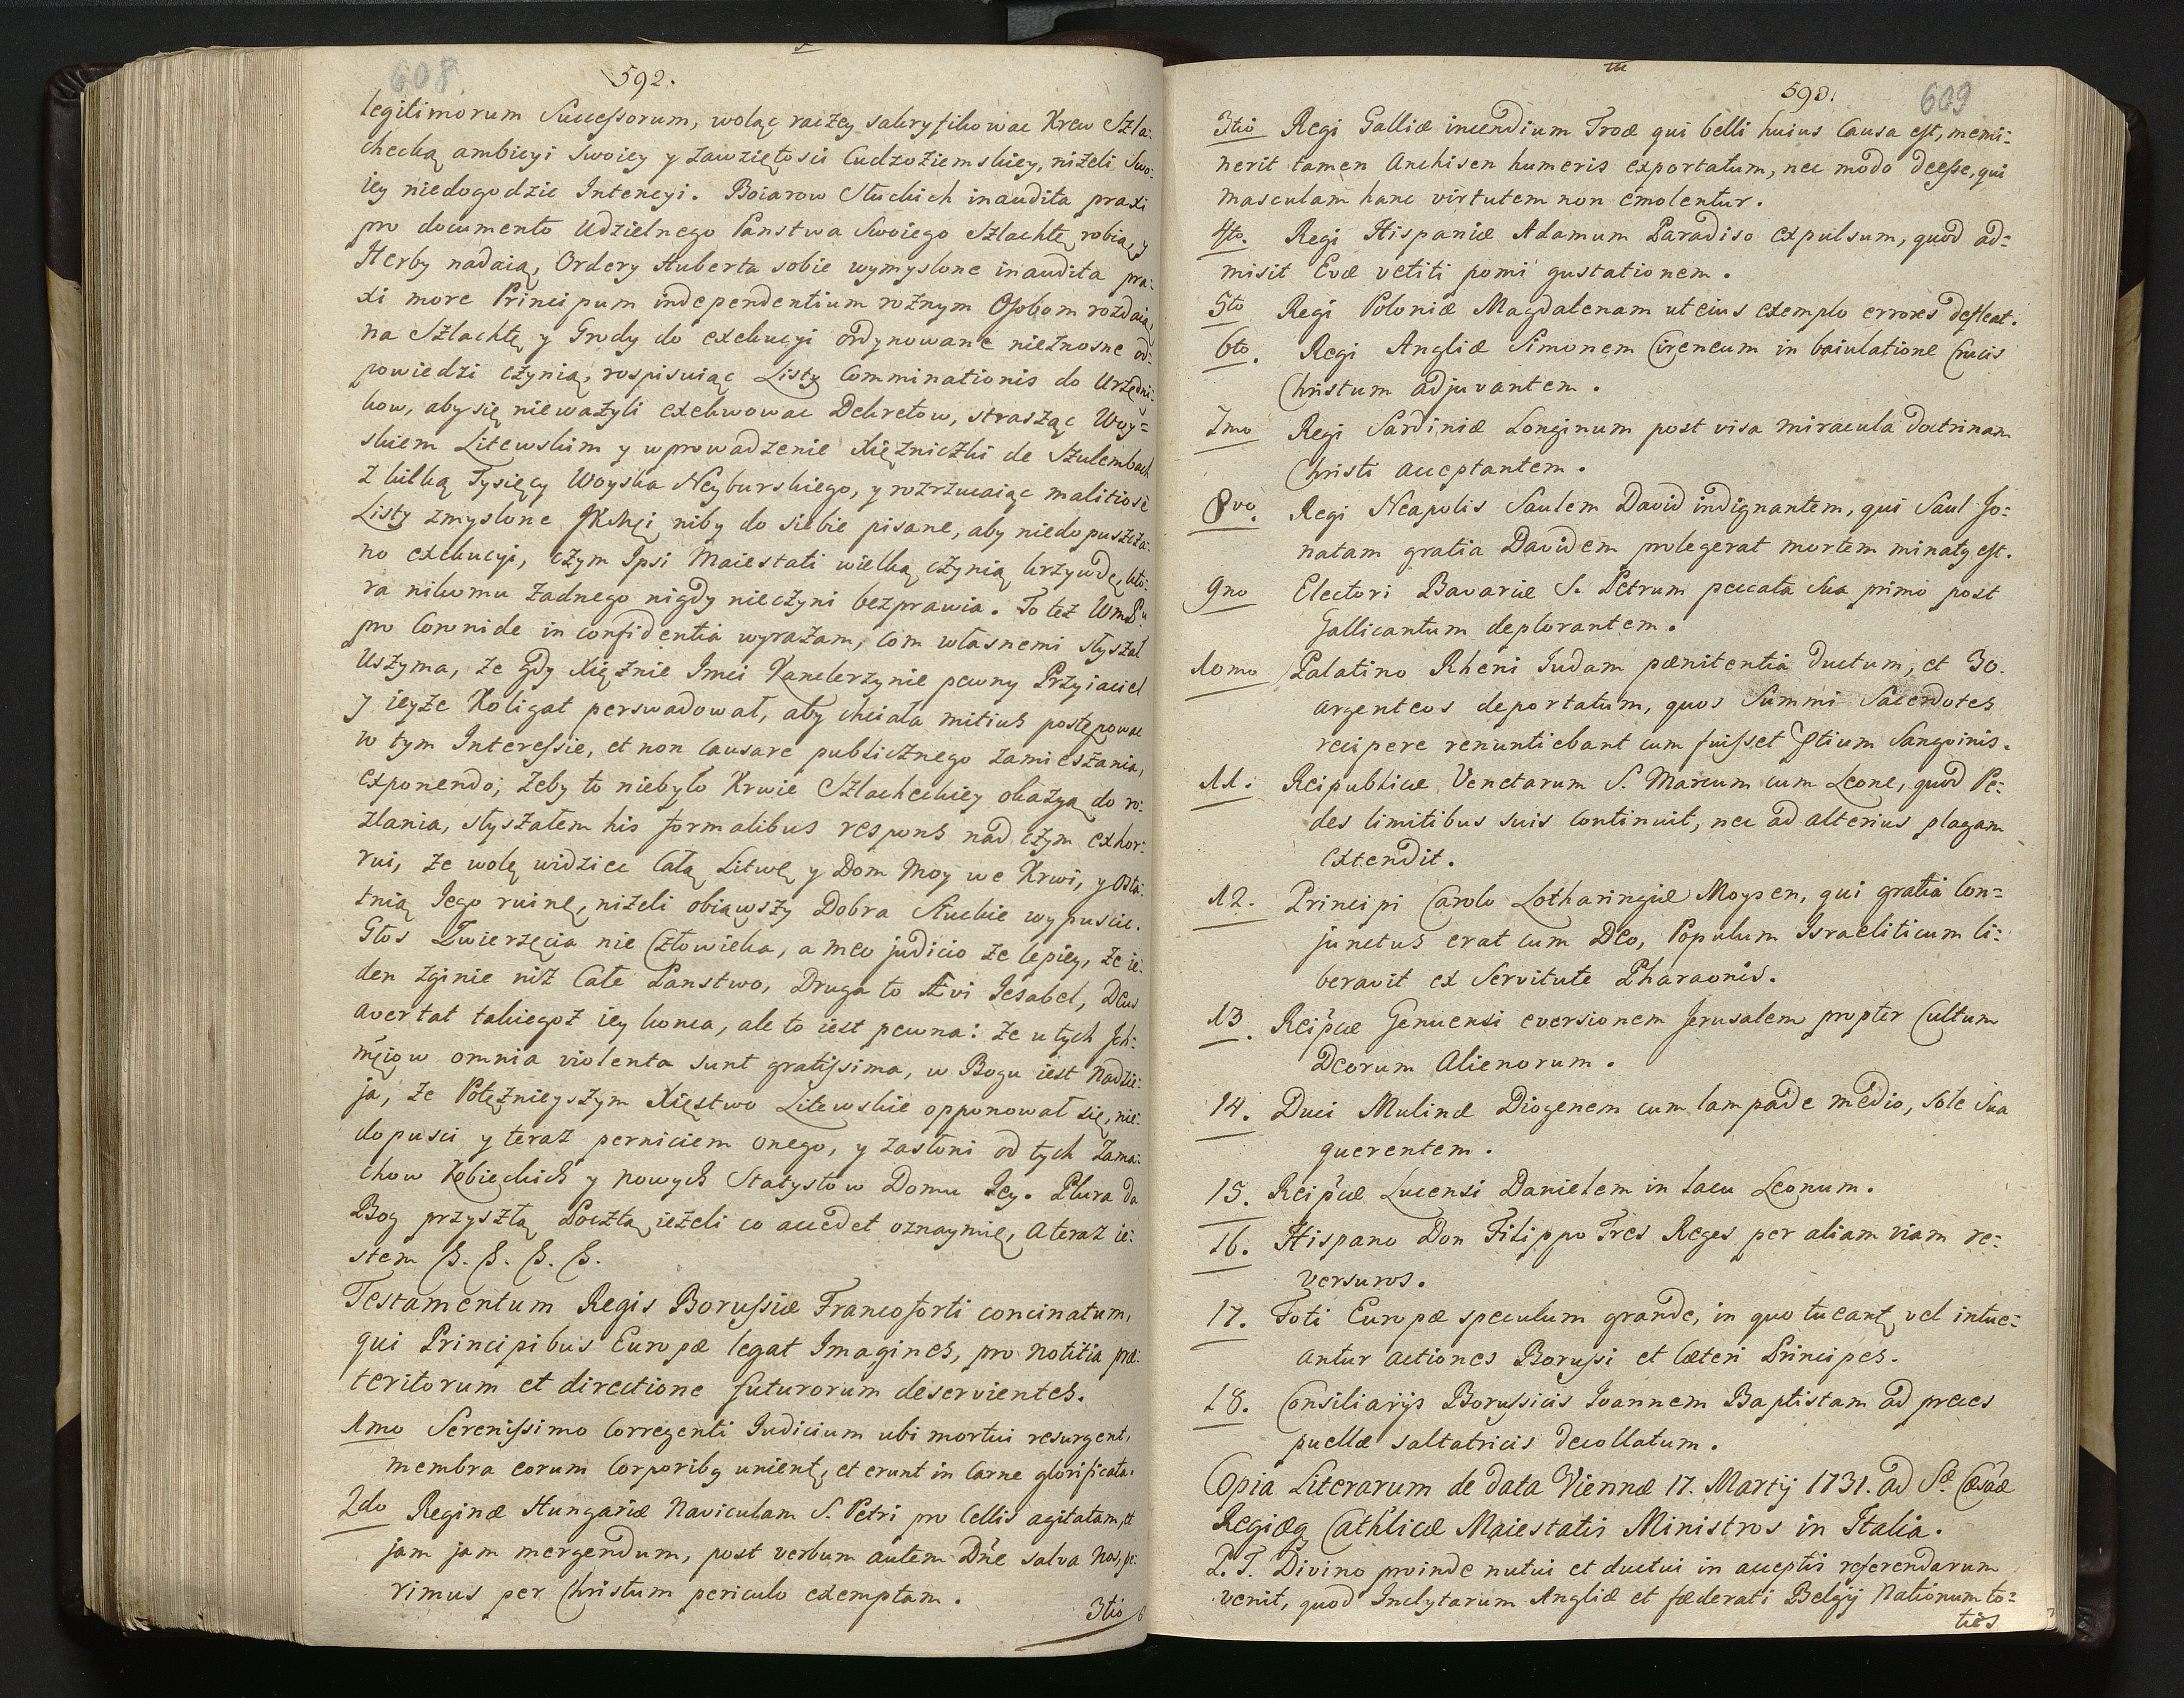 608
592.
legitimorum Successorum, woląc raczey sakryfikowac Krew Szla:
checką ambicyi Swoiey y zawziętosci Cudzoziemskiey, nizeli Swo:
iey niedogodzic Intencyi. Boiarow Sluckich inaudita praxi
pro documento Udzielnego Panstwa Swoiego Szlachtę robią, y
Herby nadaią, Ordery Huberta sobie wymyslone inaudita pra:
xi more Principum independentium roznym Osobom rozdaią,
na Szlachtę y Grody do exekucyi ordynowane nieznosne od:
powiedzi czynią, rospisuiąc Listy Comminationis do Urzędni:
kow, aby się niewazyli exekwowac Dekretow, strasząc Woy=
skiem Litewskim y wprowadzenie Xięzniczki de Szulembach
z kilką Tysięcy Woyska Neyburskiego, y rozrzucaiąc malitiose
Listy zmyslone niby do siebie pisane, aby niedopuszcza:
no exekucyi, czym Ipsi Maiestati wielką czynią krzywdę, kto:
ra nikomu zadnego nigdy nieczyni bezprawia. To tez WmPu
pro Coronide in confidentia wyrazam, com własnemi słyszał
Uszyma, ze gdy Xięznie Imci Kanclerzynie pewny Przyiaciel
y ieyze Koligat perswadował, aby chciała mitius postępowac
w tym Interessie, et non Causare publicznego zamieszania,
exponendo; zeby to niebyło Krwie Szlacheckiey okazyą do ro:
zlania, słyszałem his formalibus respons nad czym exhor:
rui, ze wolę widziec Całą Litwę y Dom Moy we Krwi, y osta:
tnią Jego ruinę, nizeli obiąwszy Dobra Sluckie wypuscic.
Głos Zwierzęcia nie Człowieka, a meo judicio ze lepiey, ze ie:
den zginie niz Całe Panstwo, Druga to Ævi Jesabel, Deus
avertat takiegoz iey konca, ale to iest pewna: ze u tych Jch:
mciow omnia violenta sunt gratissima, w Bogu iest Nadzie:
ja, ze Potęznieyszym Xięstwo Litewskie opponował się, nie:
dopusci y teraz perniciem onego, y zasłoni od tych Zama:
chow Kobieckich y nowych Statystow Domu Jey. Plura da
Bog przyszłą Pocztą iezeli co accedet oznaymię, A teraz ie:
stem &. &. &. &.
Testamentum Regis Borussiæ Francoforti concinatum,
qui Principibus Europæ legat Imagines, pro notitia præ:
teritorum et directione futurorum deservientes.
1mo Serenissimo Corregenti Judicium ubi mortui resurgent,
membra eorum Corporibq unientq, et erunt in Carne glorificata.
2do Reginæ Hungariæ Naviculam S. Petri pro Cellis agitatam, et
jam jam mergendum, post verbum autem Dñe salva nos, pe:
rimus per Christum periculo exemptam.
3tio
593.
609
3tio Regi Galliæ incendium Troæ qui belli huius Causa est, memi:
nerit tamen Anchisen humeris exportatum, nec modo deesse, qui
masculam hanc virtutem non emolentur.
4to. Regi Hispaniæ Adamum Paradiso expulsum, quod ad=
misit Evæ vetiti pomi gustationem.
5to Regi Poloniæ Magdalenam ut eius exemplo errores defleat.
6to. Regi Angliæ Simonem Cireneum in baiulatione Crucis
Christum adjuvantem.
7mo Regi Sardiniæ Longinum post visa miracula doctrinam
Christi acceptantem.
8vo. Regi Neapolis Saulem David indignantem, qui Saul Jo:
natam gratia Davidem prolegerat mortem minatq est.
9no Electori Bavariæ S. Petrum peccata sua primo post
Gallicantum deplorantem.
10mo Palatino Rheni Judam pænitentia ductum, et 30.
argenteos deportatum, quos Summi Sacerdotes
recipere renuntiebant cum fuisset ptium Sangvinis.
11. Reipublicæ Venetarum S. Marcum cum Leone, quod Pe:
des limitibus suis continuit, nec ad alterius plagam
extendit.
12. Principi Carolo Lotharingiæ Moysen, qui gratia Con=
junctus erat cum Deo, Populum Israeliticum li:
beravit ex Servitute Pharaonis.
13. Reip̃cæ Genuensi eversionem Jerusalem propter Cultum
Deorum Alienorum.
14. Duci Mutinæ Diogenem cum lampade medio, sole sua
querentem.
15. Reip̃cæ Lucensi Danielem in lacu Leonum.
16. Hispano Don Filippo Tres Reges per aliam viam re:
versuros.
17. Toti Europæ speculum grande, in quo tueantq vel intue:
antur actiones Borussi et Cæteri Principes.
18. Consiliarijs Borussicis Joannem Baptistam ad preces
puellæ saltatricis decollatum.
Copia Literarum de data Viennæ 17. Martij 1731. ad Sæ Cæsaæ
Regiæq Cathlicæ Maiestatis Ministros in Italia.
P. T. Divino proinde nutui et ductui in acceptis referendarum
venit, quod Inclytarum Angliæ et fæderati Belgij Nationum to=
ties